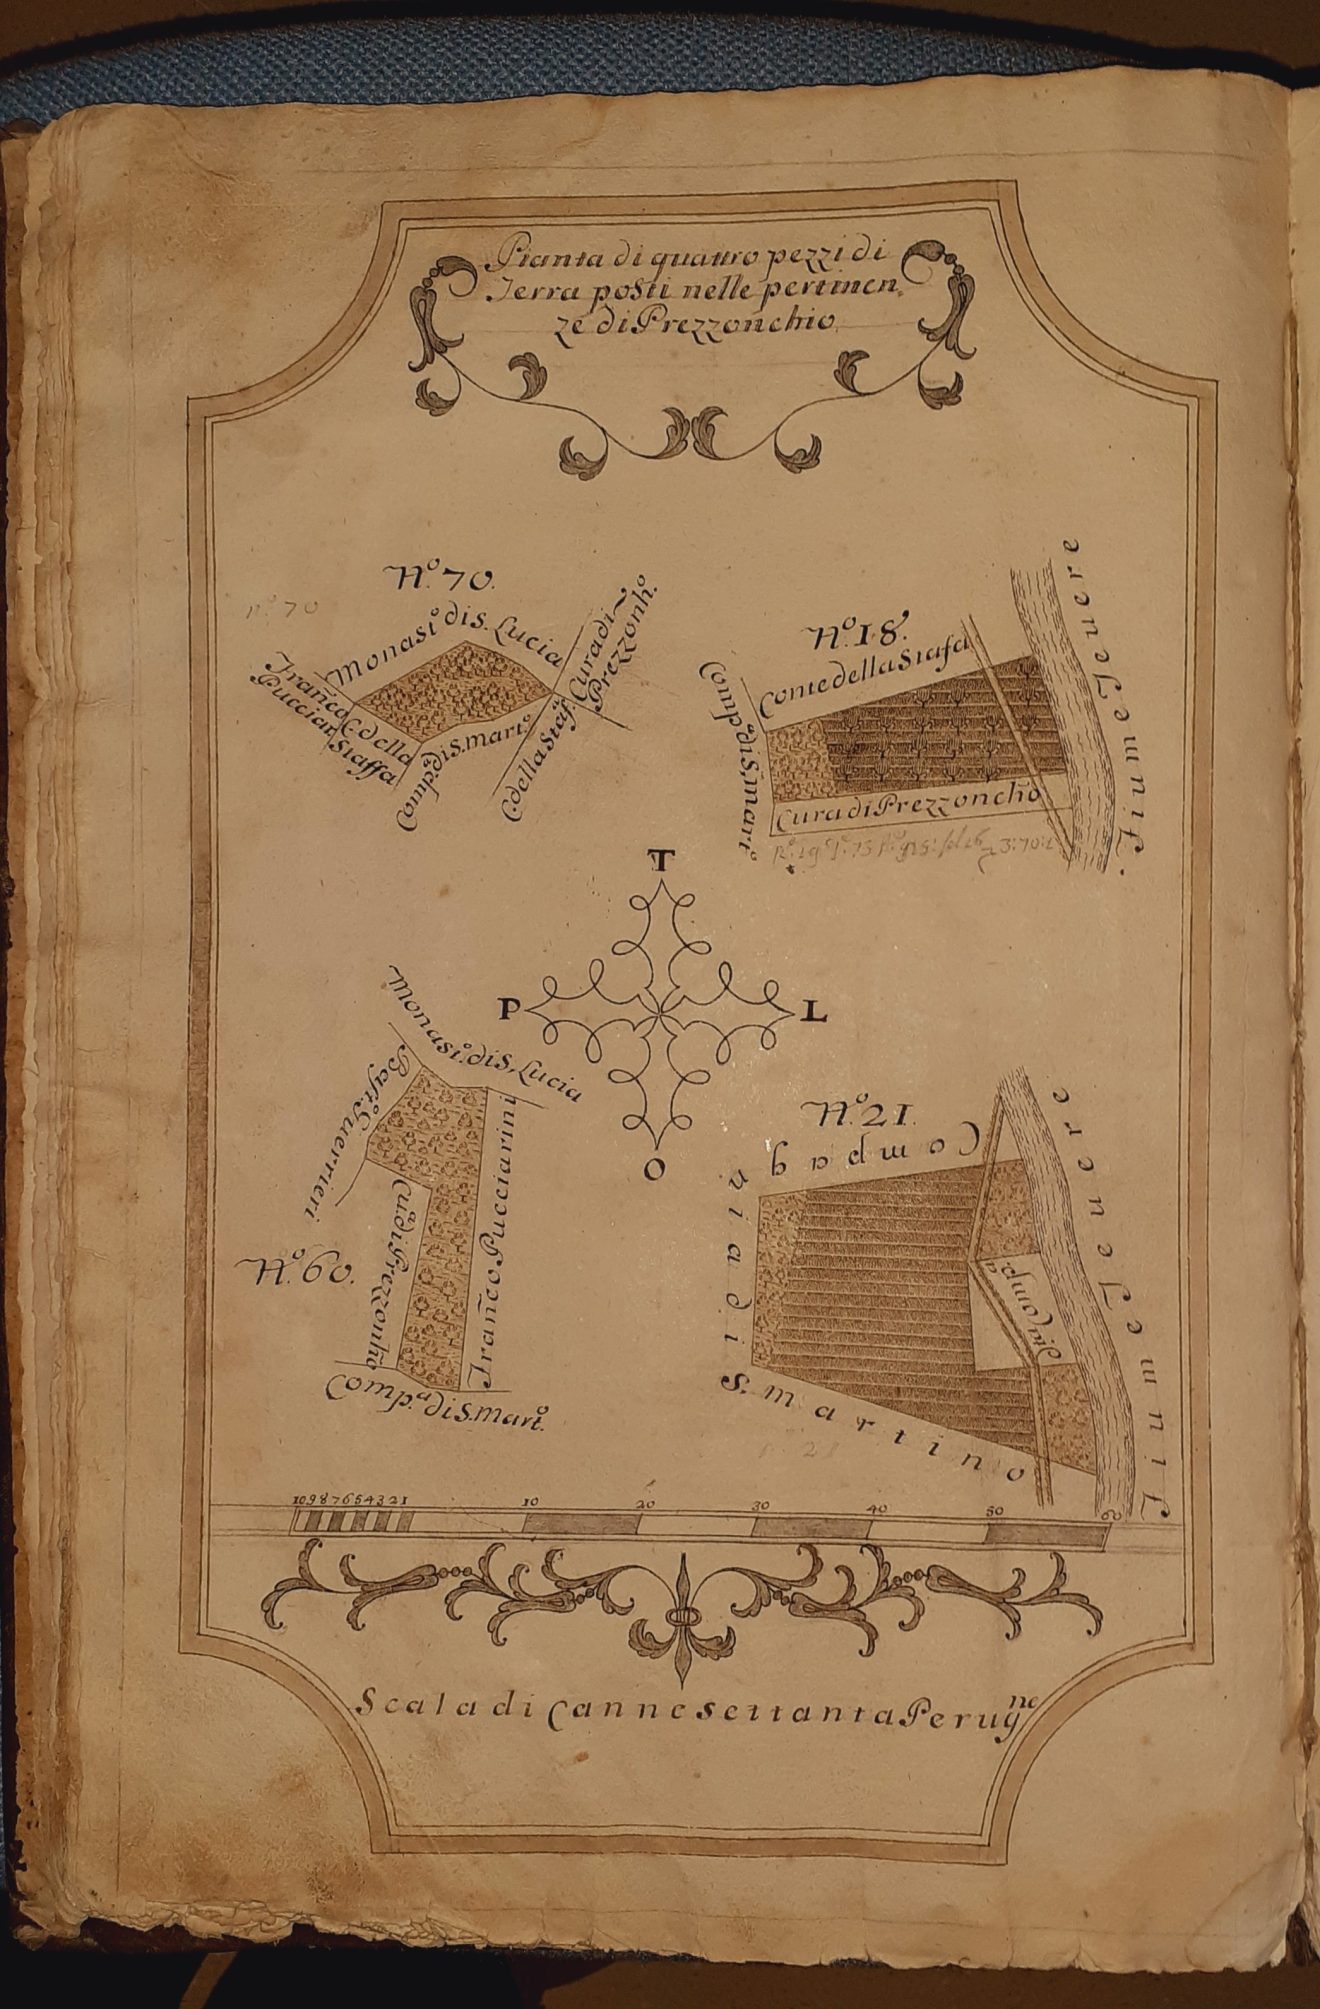 Pianta di quattro pezzi di
Terra posti nelle pertinen
ze di Prezzonchio
N.º 70.
nº 70
Monastº di S. Lucia
Curadi
Prezzonhº
Franco
Pucciar
C. della
Staffa
Compª di S. Martº
C. della Stafª
N.º 18.
Conte della Stafa
Compª di S. Martº
Cura di Prezzonchº
Fiume Teuere
T
P
L
O
Monastº di S. Lucia
Bastº Guerrieri
N.º 60.
Curª di Prezzonhº
Franco Pucciarini
Compª di S. Martº
N.º 21.
Compag
nia di
S. Martino
di Campª
Fiume Teuere
10 9 8 7 6 5 4 3 2 1 10 20 30 40 50 60
Scala di Canne settanta Perugne